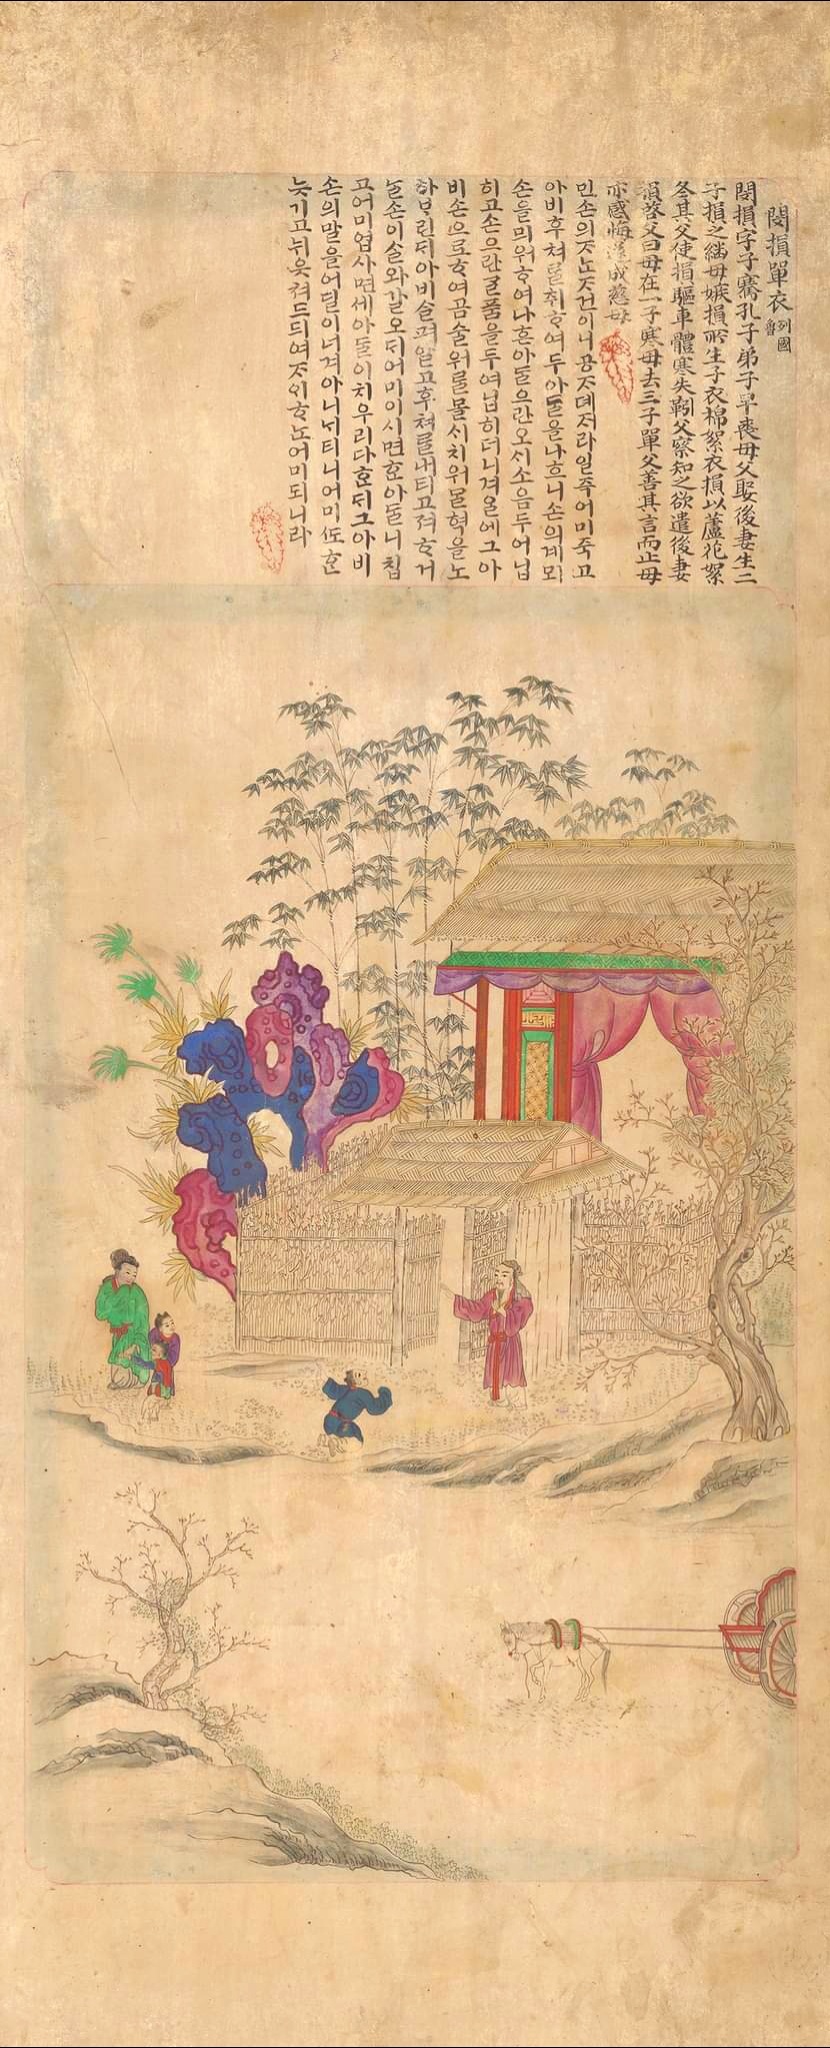 閔損單衣 列國 魯
閔損字子騫孔子弟子早喪母父娶後妻生二
子損之繼母嫉損所生子衣棉絮衣損以蘆花絮
冬其父使損驅車體寒失靷父察知之欲遣後妻
損啓父曰母在一子寒母去三子單父善其言而止母
亦感悔遂成慈母
민손의ᄌᆞᄂᆞᆫᄌᆞ건이니공ᄌᆞ뎨ᄌᆡ라일죽어미죽고
아비후쳐ᄅᆞᆯ취ᄒᆞ여두아ᄃᆞᆯ을나흐니손의계뫼
손을믜워ᄒᆞ여나흔아ᄃᆞᆯ으란오시소음두어닙
히고손으란ᄀᆞᆯ품을두여닙히더니겨ᄋᆞᆯ에그아
비손으로ᄒᆞ여곰술위ᄅᆞᆯ몰시치워ᄆᆞᆯ혁을노
하ᄇᆞ린ᄃᆡ아비ᄉᆞᆯ펴알고후쳐ᄅᆞᆯ내티고져ᄒᆞ거
ᄂᆞᆯ손이ᄉᆞᆯ와ᄀᆞᆯ오ᄃᆡ어미이시면ᄒᆞᆫ아ᄃᆞᆯ이칩
고어미업사면세아ᄃᆞᆯ이치우리다ᄒᆞᆫᄃᆡ그아비
손의말을어딜이너겨아니ᄂᆡ티니어미ᄯᅩᄒᆞᆫ
늣기고뉘웃쳐드듸여ᄌᆞᄋᆡᄒᆞᄂᆞᆫ어미되니라